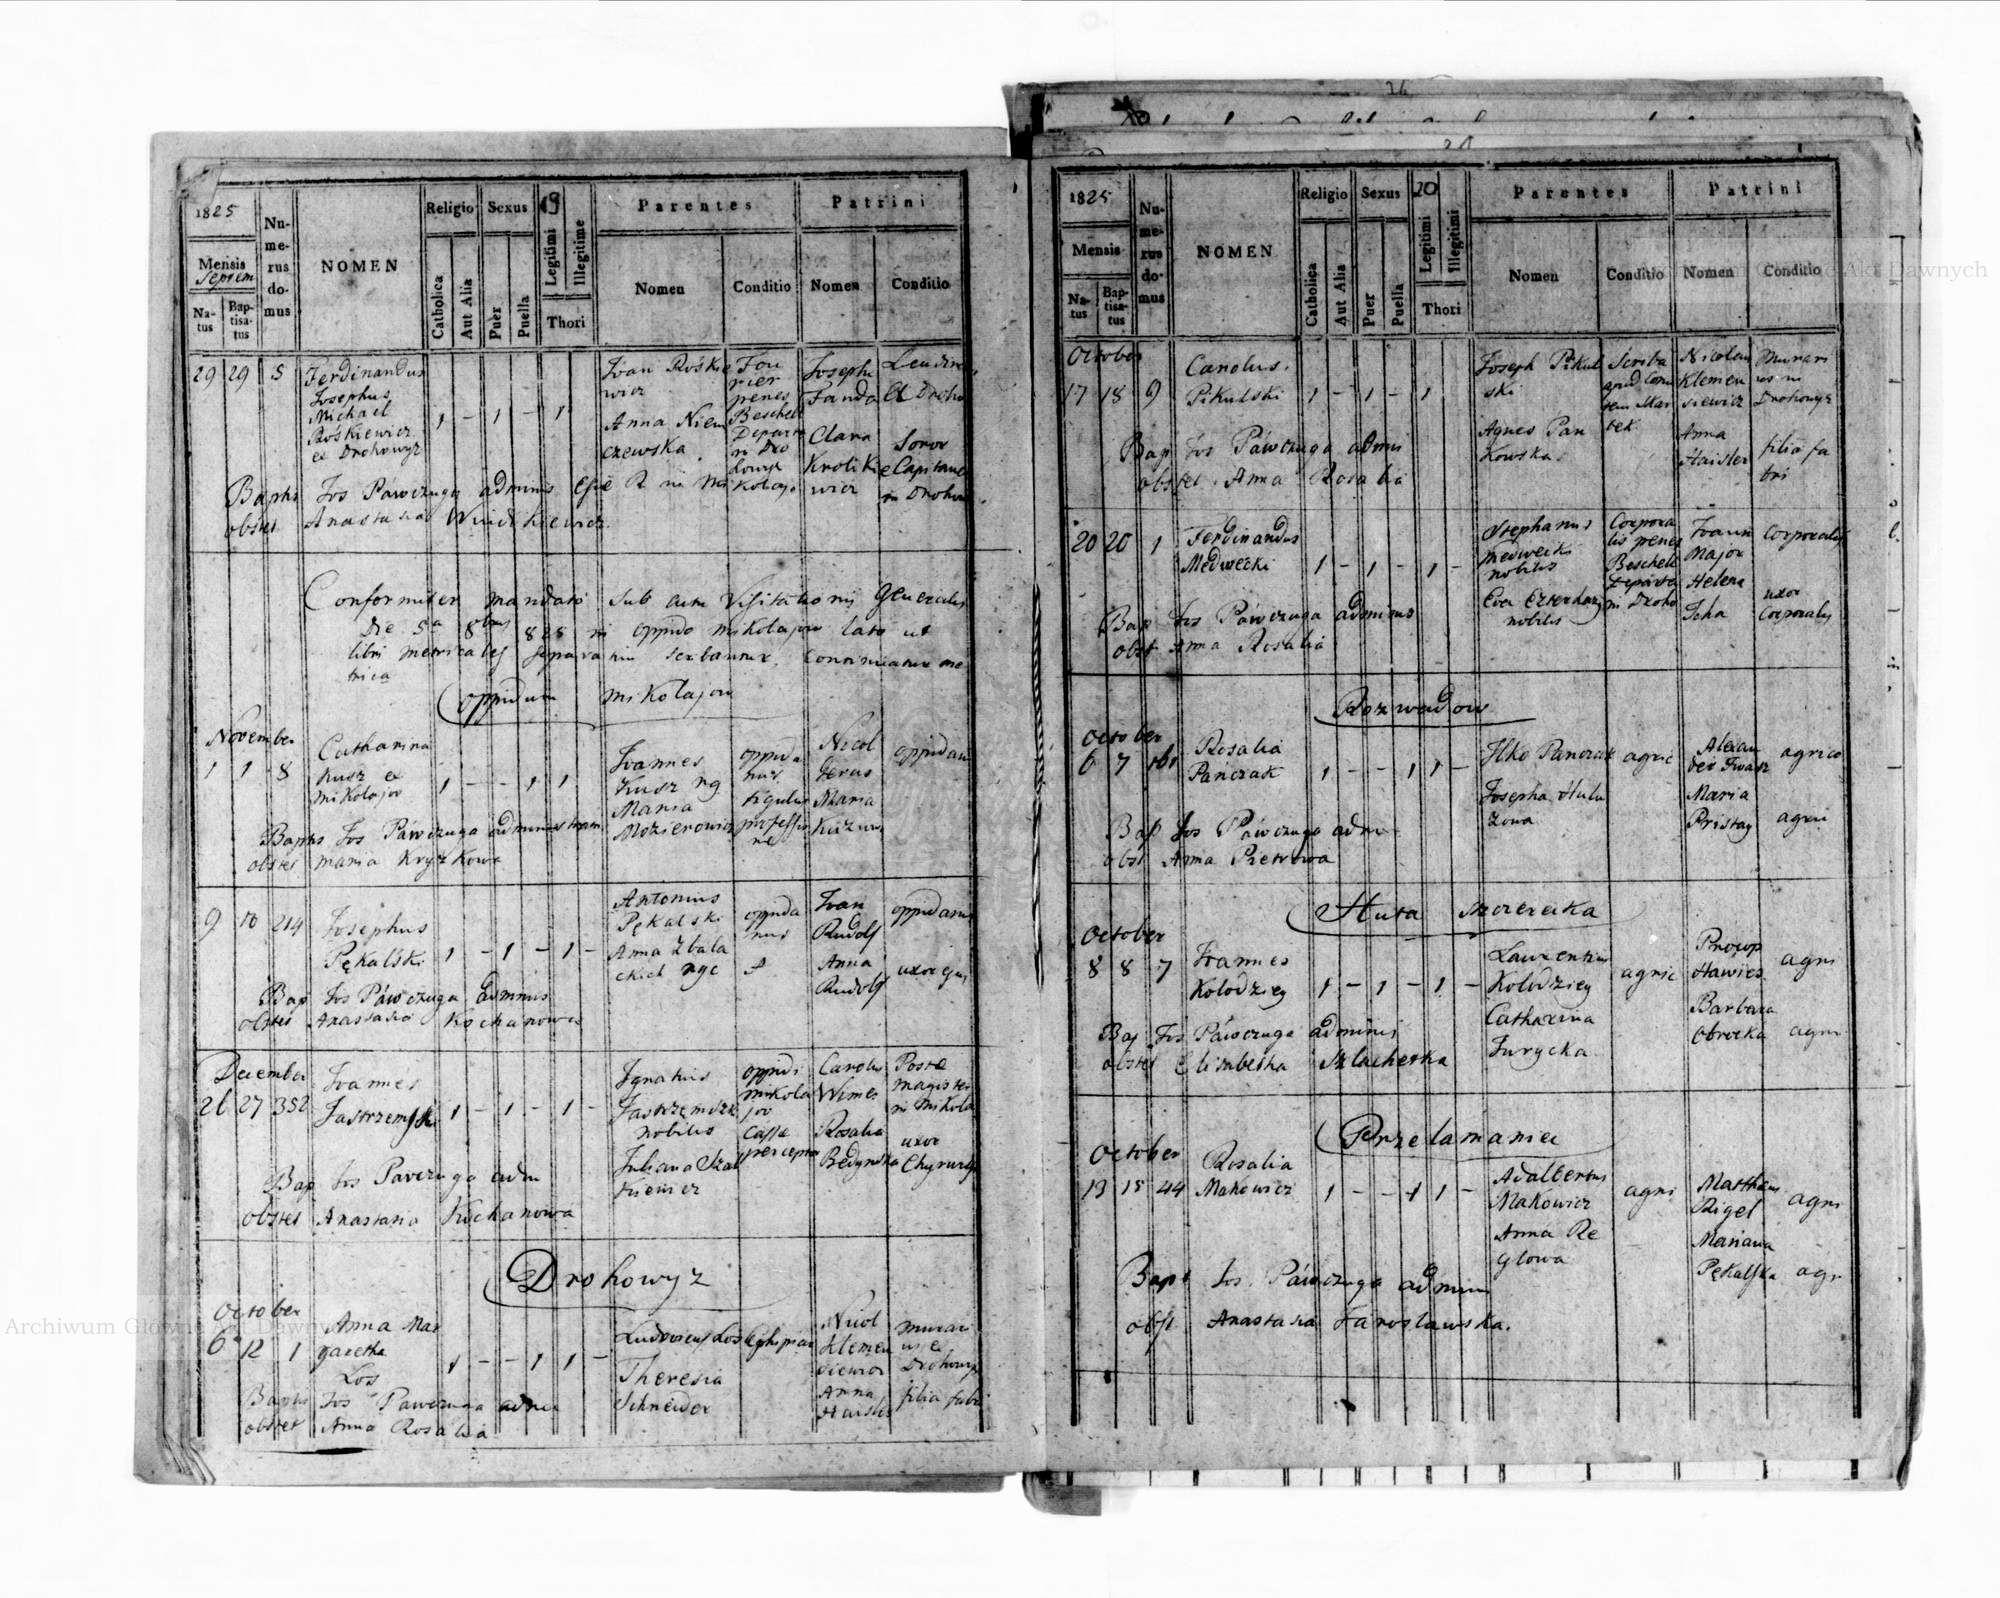 1825
Mensis
Septem
Na-
tus
Bap-
tisa-
tus
Nu-
me-
rus
do-
mus
NOMEN
Religio
Catholica
Aut Alia
Sexus
Puer
Puella
19
Legitimi
Illegitime
Thori
Parentes
Nomen
Conditio
Patrini
Nomen
Conditio
29 29 5
Ferdinandus
Josephus
Michael
Rośkiewicz
ex Drohowyz
1 - 1 - 1
Joan Rośkie
wicz
Anna Niem
czewska
Fou
rier
penes
Beschell
Depart
in Dro
howyz
Joseph
Fanda
Clara
Krotkie
wicz
ex Droho
Soror
e Capitane
in Drohow
Baptis Jos Páwczuga adminis Eccle R in Mi kolajo
obstet Anastasia
Conformiter mandato sub actu Visitationis Generalis
Die 5a 8bris 825 in oppido Mikolajow lato ut
libri metricales separatim scribantur. Continuatur me
trica
Oppidum Mikolajow
November
1 1 8
Catharina
Kusz ex
Mikolajow
1 - - 1 1
Joannes
Kusz
Maria
Mozierowicz
oppida
nus
figulus
professio
ne
Nicol
Maria
oppidan
Baptis Jos Páwczuga administram
obstet Maria Kryzkowa
9 10 214
Josephus
Pękalski
1 - 1 - 1 -
Antonius
Pękalski
Anna Zbala
oppida
nus
Joan
Rudolf
Anna
Rudolf
oppidanus
uxor ejus
Bap Jos Páwczuga Adminis
obstet Anastasia Kochanowa
December
26 27 352
Joannes
Jastrzemski
1 - 1 - 1 -
Ignatius
Jastrzemski
nobilis
Juliana Szal
kiewicz
oppidi
Mikola
jow
Cassae
perceptor
Carolus
Wimes
Rosalia
Bedynska
Poste
magister
in Mikola
uxor
Chyrurgi
Bap Jos Pawczuga adm
obstet Anastasia Kochanowa
Drohowyz
October
6 12 1
Anna Mar
garetha
Los
1 - - 1 1 -
Ludovicus Los
Theresia
Schneider
Nicol
Klemen
siewicz
Anna
Haisler
murari
us e
Drohowyz
filia fabri
Baptis Jos Pawczuga adm
obstet Anna Rosalia
1825
Mensis
Na-
tus
Bap-
tisa-
tus
Nu-
me-
rus
do-
mus
NOMEN
Religio
Catholica
Aut Alia
Sexus
Puer
Puella
20
Legitimi
Illegitimi
Thori
Parentes
Nomen
Conditio
Patrini
Nomen
Conditio
October
17 18 9
Carolus
Pikulski
1 - 1 - 1
Joseph Pikul
ski
Agnes Pan
kowska
Scriba
apud Com
sem Mar
tek
Nicolaus
Klemen
siewicz
Anna
Haisler
murari
us in
Drohowyz
filia fa
bri
Bap Jos Páwczuga adminis
obstet Anna Rosalia
20 20 1
Ferdinandus
Medwecki
1 - 1 - 1 -
Stephanus
Medwecki
nobilis
Eva Ezterhazy
nobilis
Corpora
lis penes
Beschell
Departa
in Droho
Joann
Major
Helena
Icha
Corporalis
uxor
Corporalis
Bap Jos Páwczuga adminis
obst Anna Rosalia
Rozwadow
October
6 7 161
Rosalia
Pańczak
1 - - 1 1 -
Ilko Panczak
Josepha Hulu
zowa
agric
Alexan
der Iwasz
Maria
Pristay
agrico
agri
Bap Jos Páwczuga adm
obst Anna Pietrowa
Huta Szczerecka
October
8 8 7
Joannes
Kolodziey
1 - 1 - 1 -
Laurentius
Kolodziey
Catharina
Jurycka
agric
Procop
Hawies
Barbara
Obrocka
agri
agri
Bap Jos Páwczuga adminis
obstet Elisabetha Szlachetka
Przelamaniec
October
13 15 44
Rosalia
Makowicz
1 - - 1 1 -
Adalbertus
Makowicz
Anna Re
glowa
agri
Mattheus
Rigel
Mariana
Pękalska
agri
agri
Bapt Jos. Páwczuga admin
obst Anastasia Jaroslawska.
Archiwum Główne Akt Dawnych
Archiwum Główne Akt Dawnych